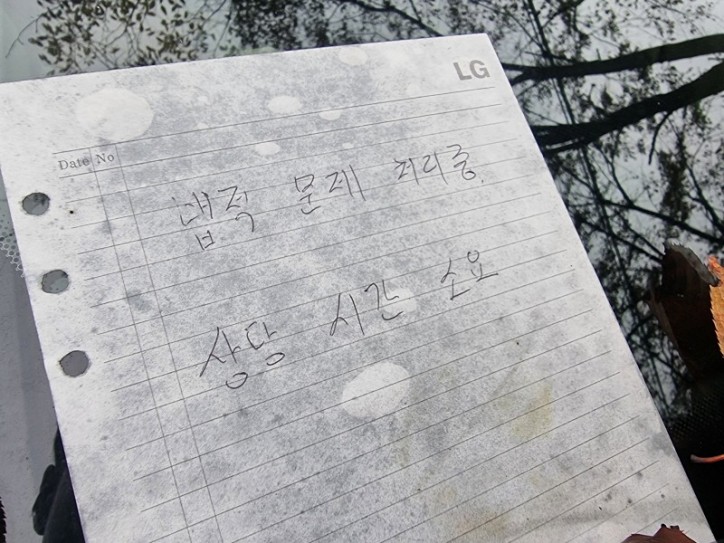 LG
Date No
법적 문제 처리중.
상당 시간 소요